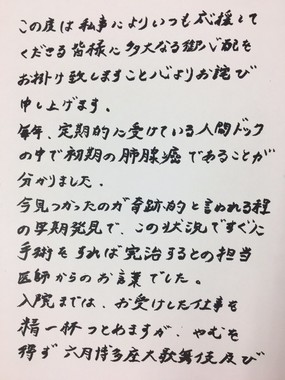 この度は私事によりいつも応援して
くださる皆様に多大なる御心配を
お掛け致しますこと心よりお詫び
申し上げます。
毎年、定期的に受けている人間ドック
の中で初期の肺腺癌であることが
分かりました。
今見つかったのが奇跡的と言われる程
の早期発見で、この状況ですぐに
手術をすれば完治するとの担当
医師からのお言葉でした。
入院までは、お受けした仕事を
精一杯つとめますが、やむを
得ず六月博多座大歌舞伎及び